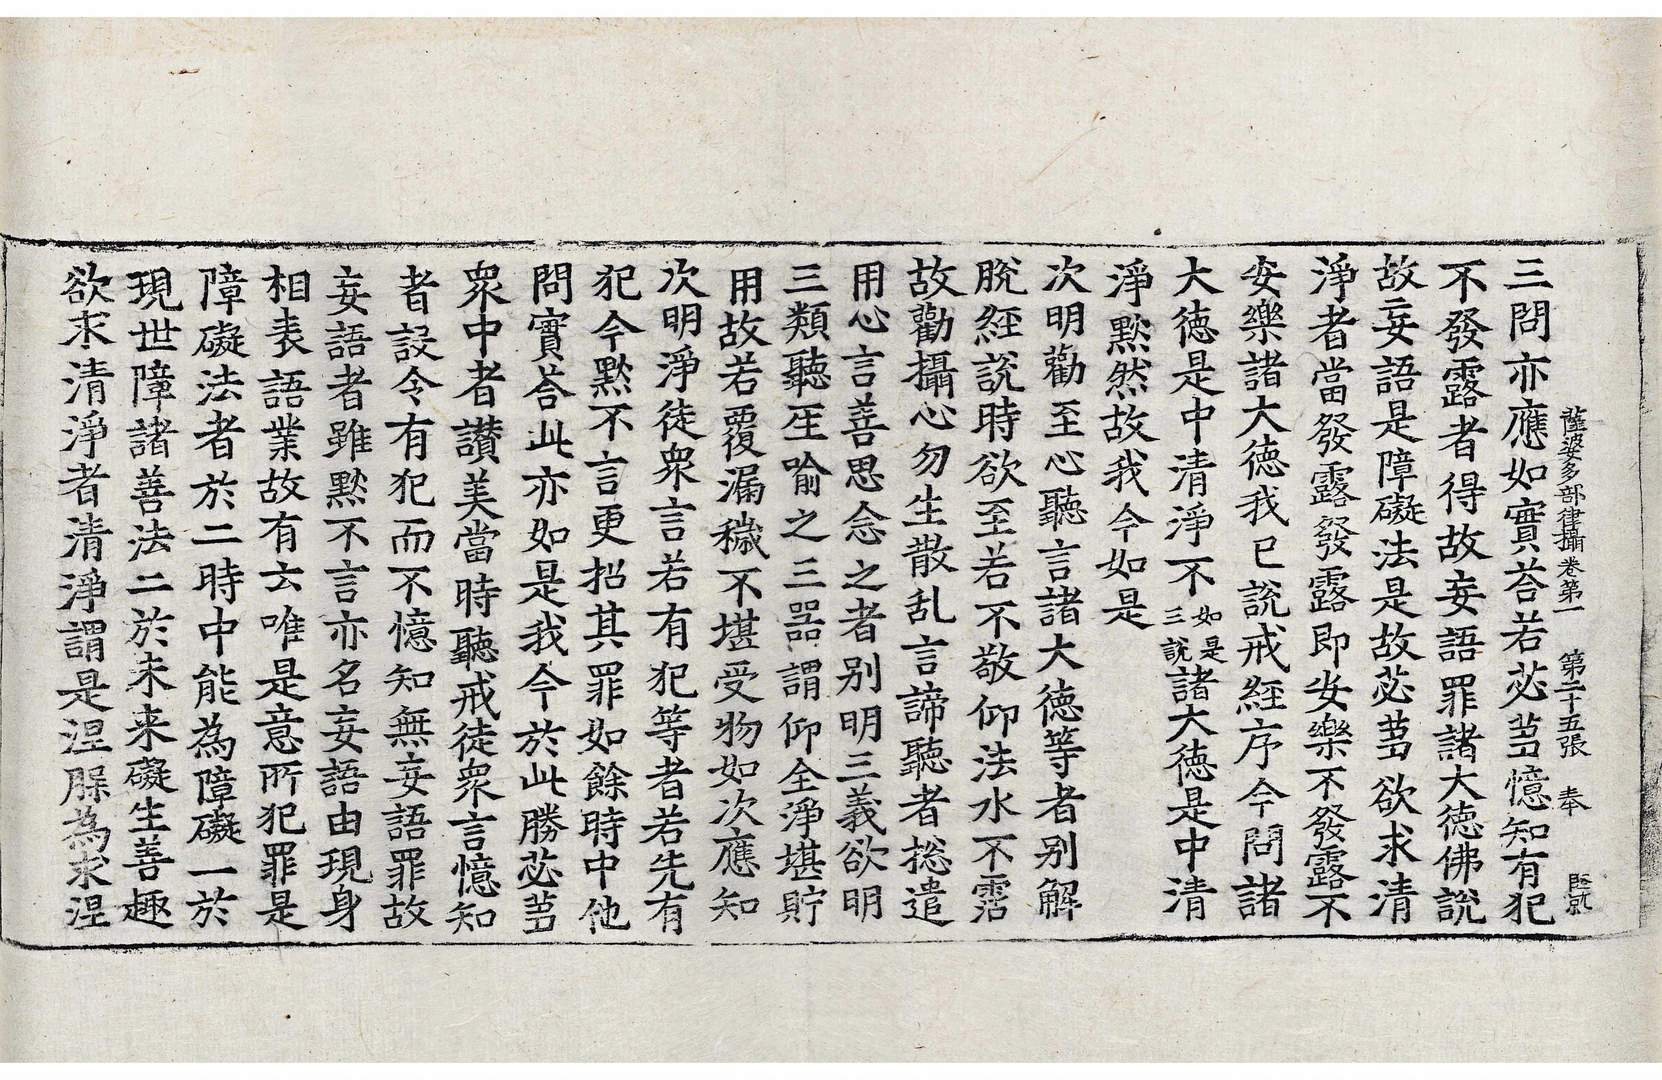 薩婆多部律攝卷第一　第二十五張　奉
三問亦應如實荅若苾蒭憶知有犯
不發露者得故妄語罪諸大德佛說
故妄語是障礙法是故苾蒭欲求清
淨者當發露發露即安樂不發露不
安樂諸大德我已說戒經序今問諸
大德是中清淨不如是三說諸大德是中清
淨黙然故我今如是
次明勸至心聽言諸大德等者別解
脫經說時欲至若不敬仰法水不霑
故勸攝心勿生散乱言諦聽者揔遣
用心言善思念之者別明三義欲明
三類聽生喻之三器謂仰全淨堪貯
用故若覆漏穢不堪受物如次應知
次明淨徒衆言若有犯等者若先有
犯今黙不言更招其罪如餘時中他
問實荅此亦如是我今於此勝苾蒭
衆中者讃美當時聽戒徒衆言憶知
者設令有犯而不憶知無妄語罪故
妄語者雖黙不言亦名妄語由現身
相表語業故有云唯是意所犯罪是
障礙法者於二時中能為障礙一於
現世障諸善法二於未来礙生善趣
欲求清淨者清淨謂是涅槃為求涅